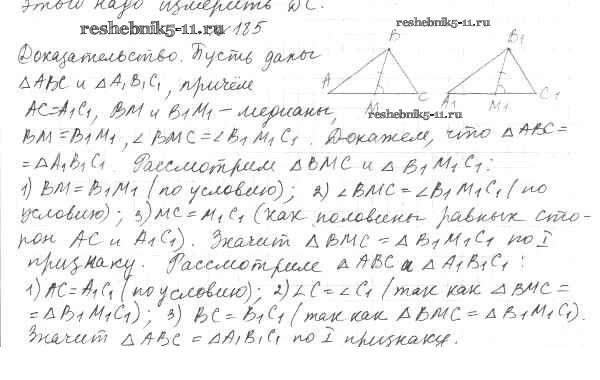 этого надо измерить DC.
reshebnik5-11.ru № 185
reshebnik5-11.ru
Доказательство. Пусть даны
△ABC и △A1B1C1, причем
AC=A1C1, BM и B1M1 – медианы,
BM=B1M1, ∠BMC=∠B1M1C1. Докажем, что △ABC=
=△A1B1C1. Рассмотрим △BMC и △B1M1C1:
1) BM=B1M1 (по условию); 2) ∠BMC=∠B1M1C1 (по
условию); 3) MC=M1C1 (как половины равных сто-
рон AC и A1C1). Значит △BMC=△B1M1C1 по I
признаку. Рассмотрим △ABC и △A1B1C1:
1) AC=A1C1 (по условию); 2) ∠C=∠C1 (так как △BMC=
=△B1M1C1); 3) BC=B1C1 (так как △BMC=△B1M1C1).
Значит △ABC=△A1B1C1 по I признаку.
B
B1
A
M
C
A1
M1
C1
reshebnik5-11.ru